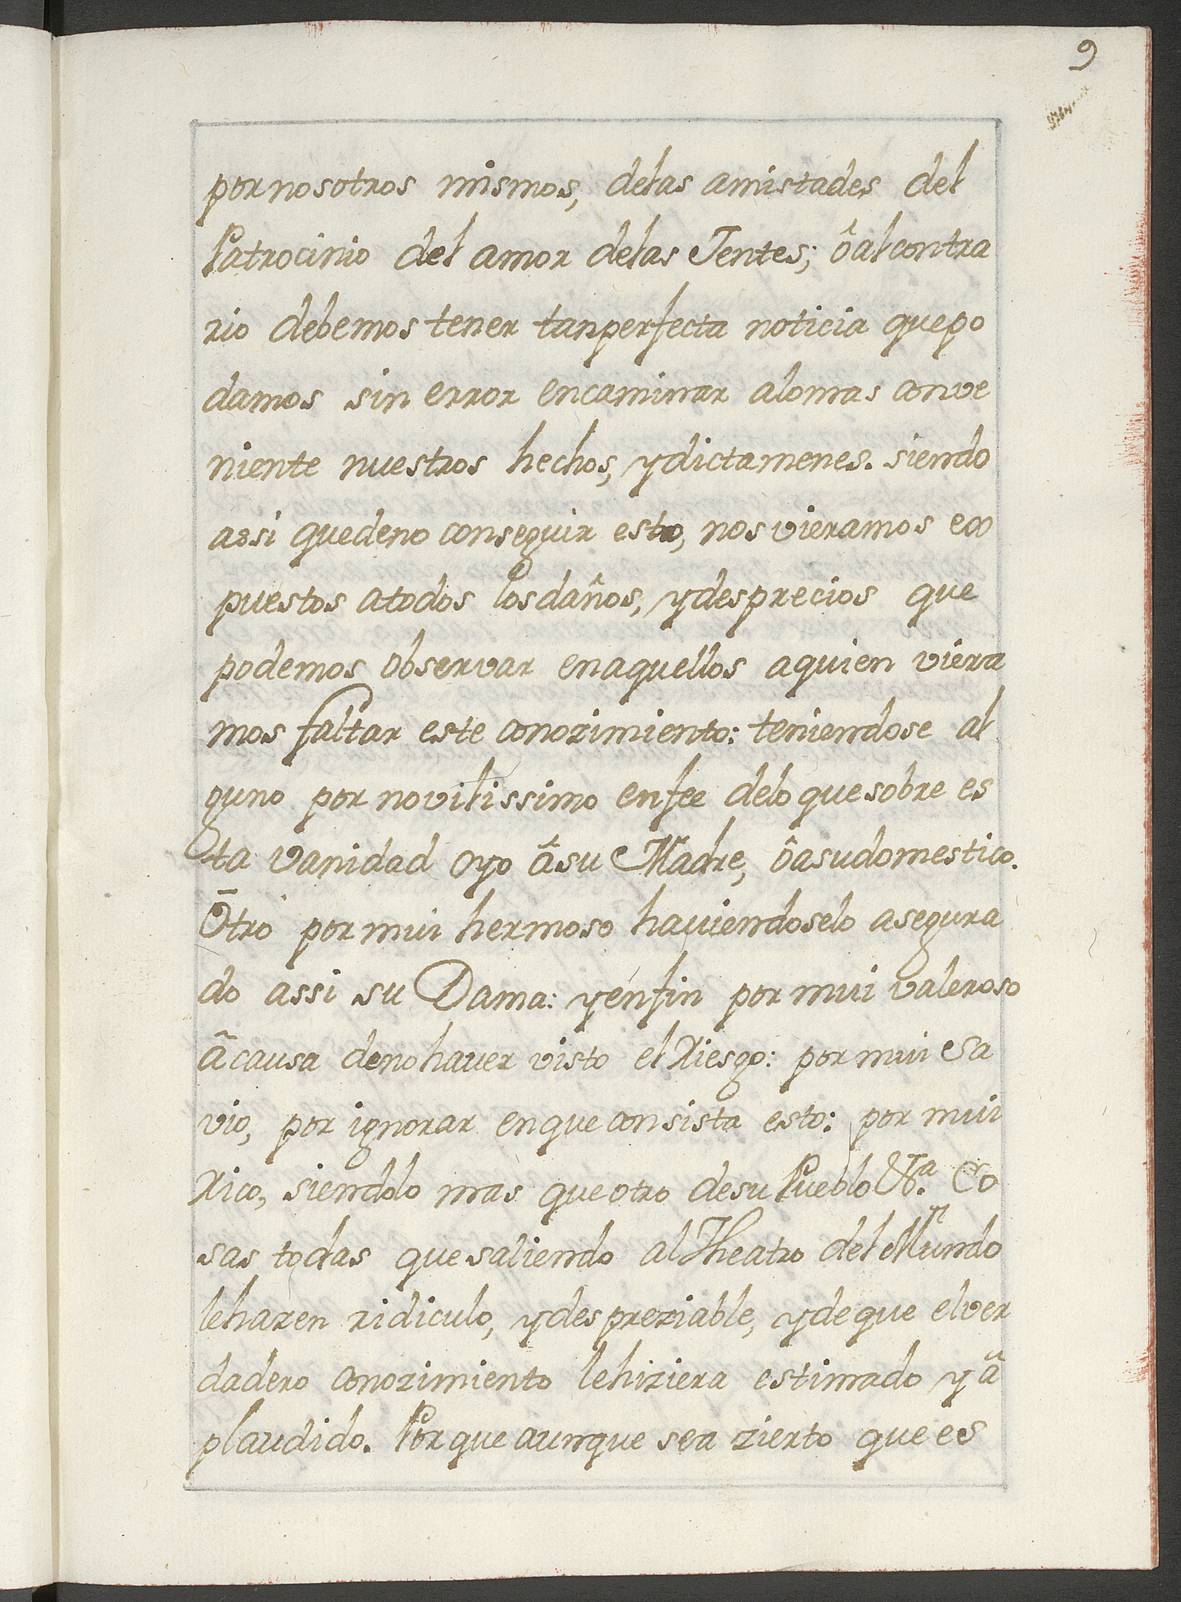 9
por nosotros mismos, delas amistades del
Patrocinio del amor delas Jentes; ô al contra
rio debemos tener tan perfecta noticia que po
damos sin error encaminar alomas conve
niente nuestros hechos, y dictamenes. siendo
assi que deno conseguir esto, nos vieramos ex
puestos atodos los daños, y desprecios que
podemos observar en aquellos aquien viera
mos faltar este conozimiento: teniendose al
guno por novilissimo enfee delo que sobre es
ta vanidad oyo â su Madre, ô asu domestico.
Otro por mui hermoso haviendoselo asegura
do assi su Dama: y én fin por mui valeroso
â causa deno haver visto el Riesgo: por mui Sa
vio, por ignorar en que consista esto: por mui
Rico, siendolo mas que otro desu Pueblo &.ª Co
sas todas que saliendo al Theatro del Mundo
le haren ridiculo, y despreziable, y de que el ver
dadero conozimiento le hiziera estimado y â
plaudido. Por que aunque sea zierto que es